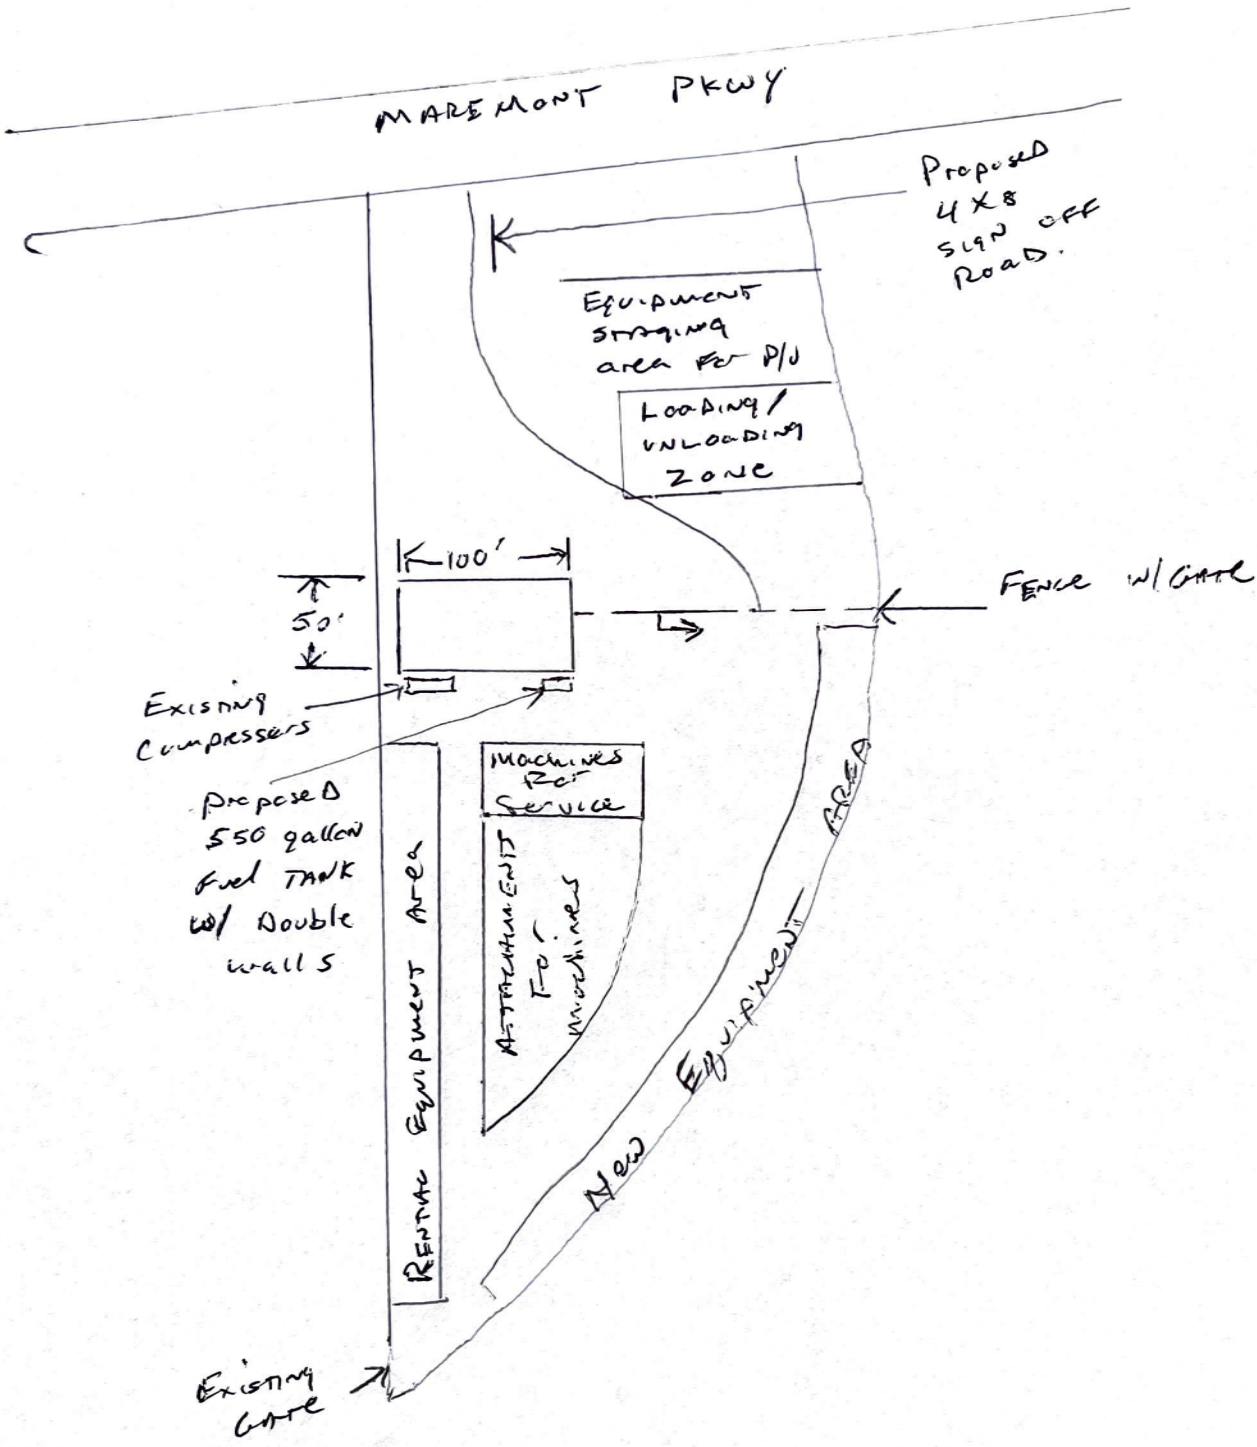 MAREMONT PKWY
Proposed
4 X 8
SIGN OFF
ROAD.
Equipment
STAGING
area For P/U
LOADING/
UNLOADING
ZONE
100'
50'
FENCE W/ GATE
Existing
Compressers
Proposed
550 gallon
Fuel TANK
W/ Double
walls
Machines
For
Service
ATTACHMENTS
For
machines
RENTAL EQUIPMENT Area
New EquipmENT AREA
EXISTING
GATE